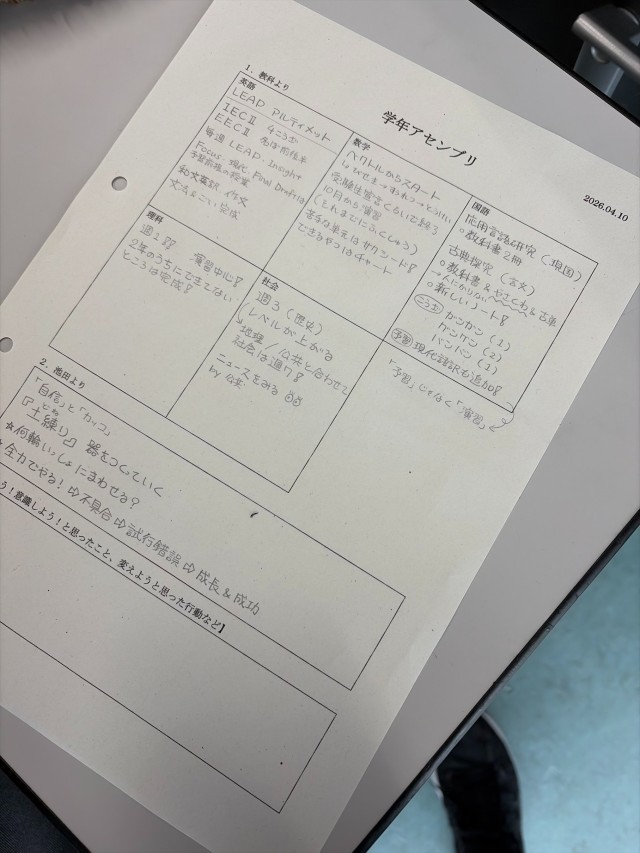 学年アセンブリ
2026.04.10
1．教科より
英語
LEAP アルティメット
IECⅡ 4こうざ
EECⅡ
毎週 LEAP・Insight
Focus 現化 Final Draftは
予習前提の授業
和文英訳 作文
文法はこい完成
数学
ベクトルからスタート
10月から演習
(それまでにふくしゅう)
苦手な単元はサクシード!
できるやつはチャート
国語
応用言語研究（現国）
○教科書2冊
古典探究（古文）
○教科書 & やさてわ & 古単
○新しいノート!
こうざ ガンガン（1）
グングン（2）
バンバン（1）
予習 現代語訳も追加!
「予習」じゃなく「演習」を
理科
週1 習 演習中心!
2年のうちにできてない
ところは完成!
社会
週3（歴史）
(レベルが上がる
地理／公共と合わせて
社会は週7!
ニュースをみる
by 公共
2．池田より
「自信」と「カッコ」
『土練り』器をつくっていく
★何輪いっしょにまわせる?
全力でやる! ⇨ 不具合 ⇨ 試行錯誤 ⇨ 成長 & 成功
う！意識しよう！と思ったこと、変えようと思った行動など】